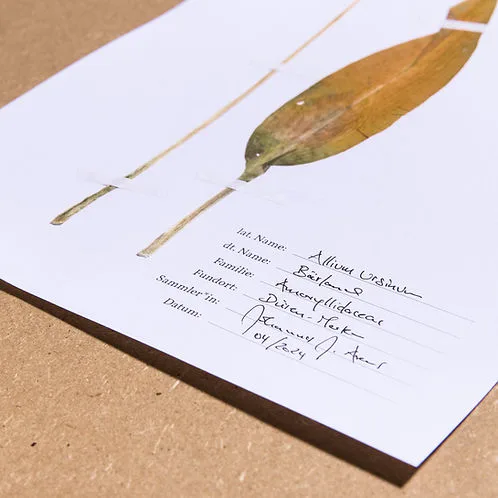 lat. Name: Allium Ursinum
dt. Name: Bärlauch
Familie: Amaryllidaceae
Fundort: Düren-Merken
Sammler*in: Johannes J.
Datum: 04/2024